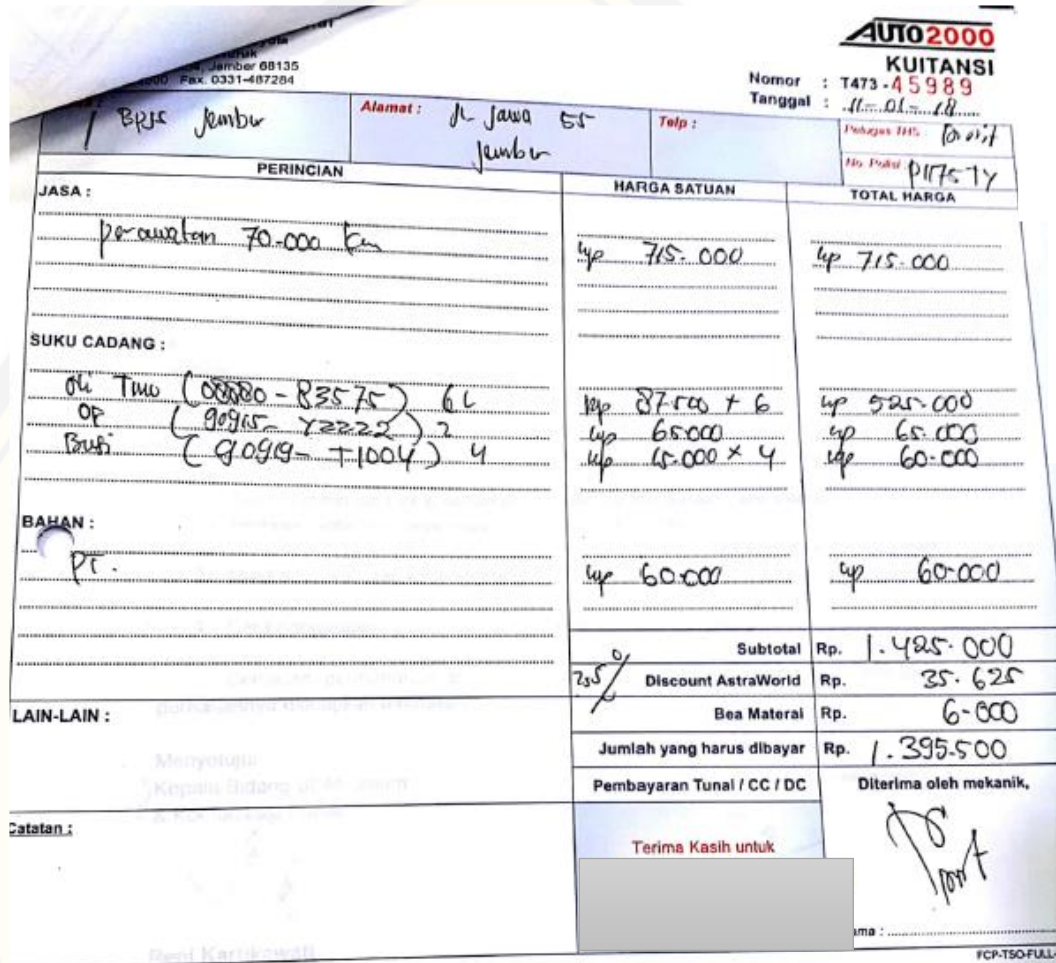 AUTO2000
KUITANSI
Jember 68135
Fax. 0331-487284
Nomor : T473-45989
Tanggal : 11-01-18
BPJS Jember
Alamat : Jl. Jawa 55
Jember
Telp :
Petugas THS :
No. Polisi : P1175TY
PERINCIAN
HARGA SATUAN
TOTAL HARGA
JASA :
perawatan 70.000 km Rp 715.000 Rp 715.000
SUKU CADANG :
Oli Tmo (08880-83575) 6L Rp 87.500 x 6 Rp 525.000
OF (90915-YZZZ2) 2 Rp 65.000 Rp 65.000
Busi (90919-T1004) 4 Rp 15.000 x 4 Rp 60.000
BAHAN :
PT. Rp 60.000 Rp 60.000
Subtotal Rp. 1.425.000
Discount AstraWorld Rp. 35.625
LAIN-LAIN :
Bea Materai Rp. 6.000
Jumlah yang harus dibayar Rp. 1.395.500
Pembayaran Tunai / CC / DC
Diterima oleh mekanik,
Catatan :
Terima Kasih untuk
Menyetujui
Kepala Bidang
Reni Kartikawati
FCP-TSO-FULL